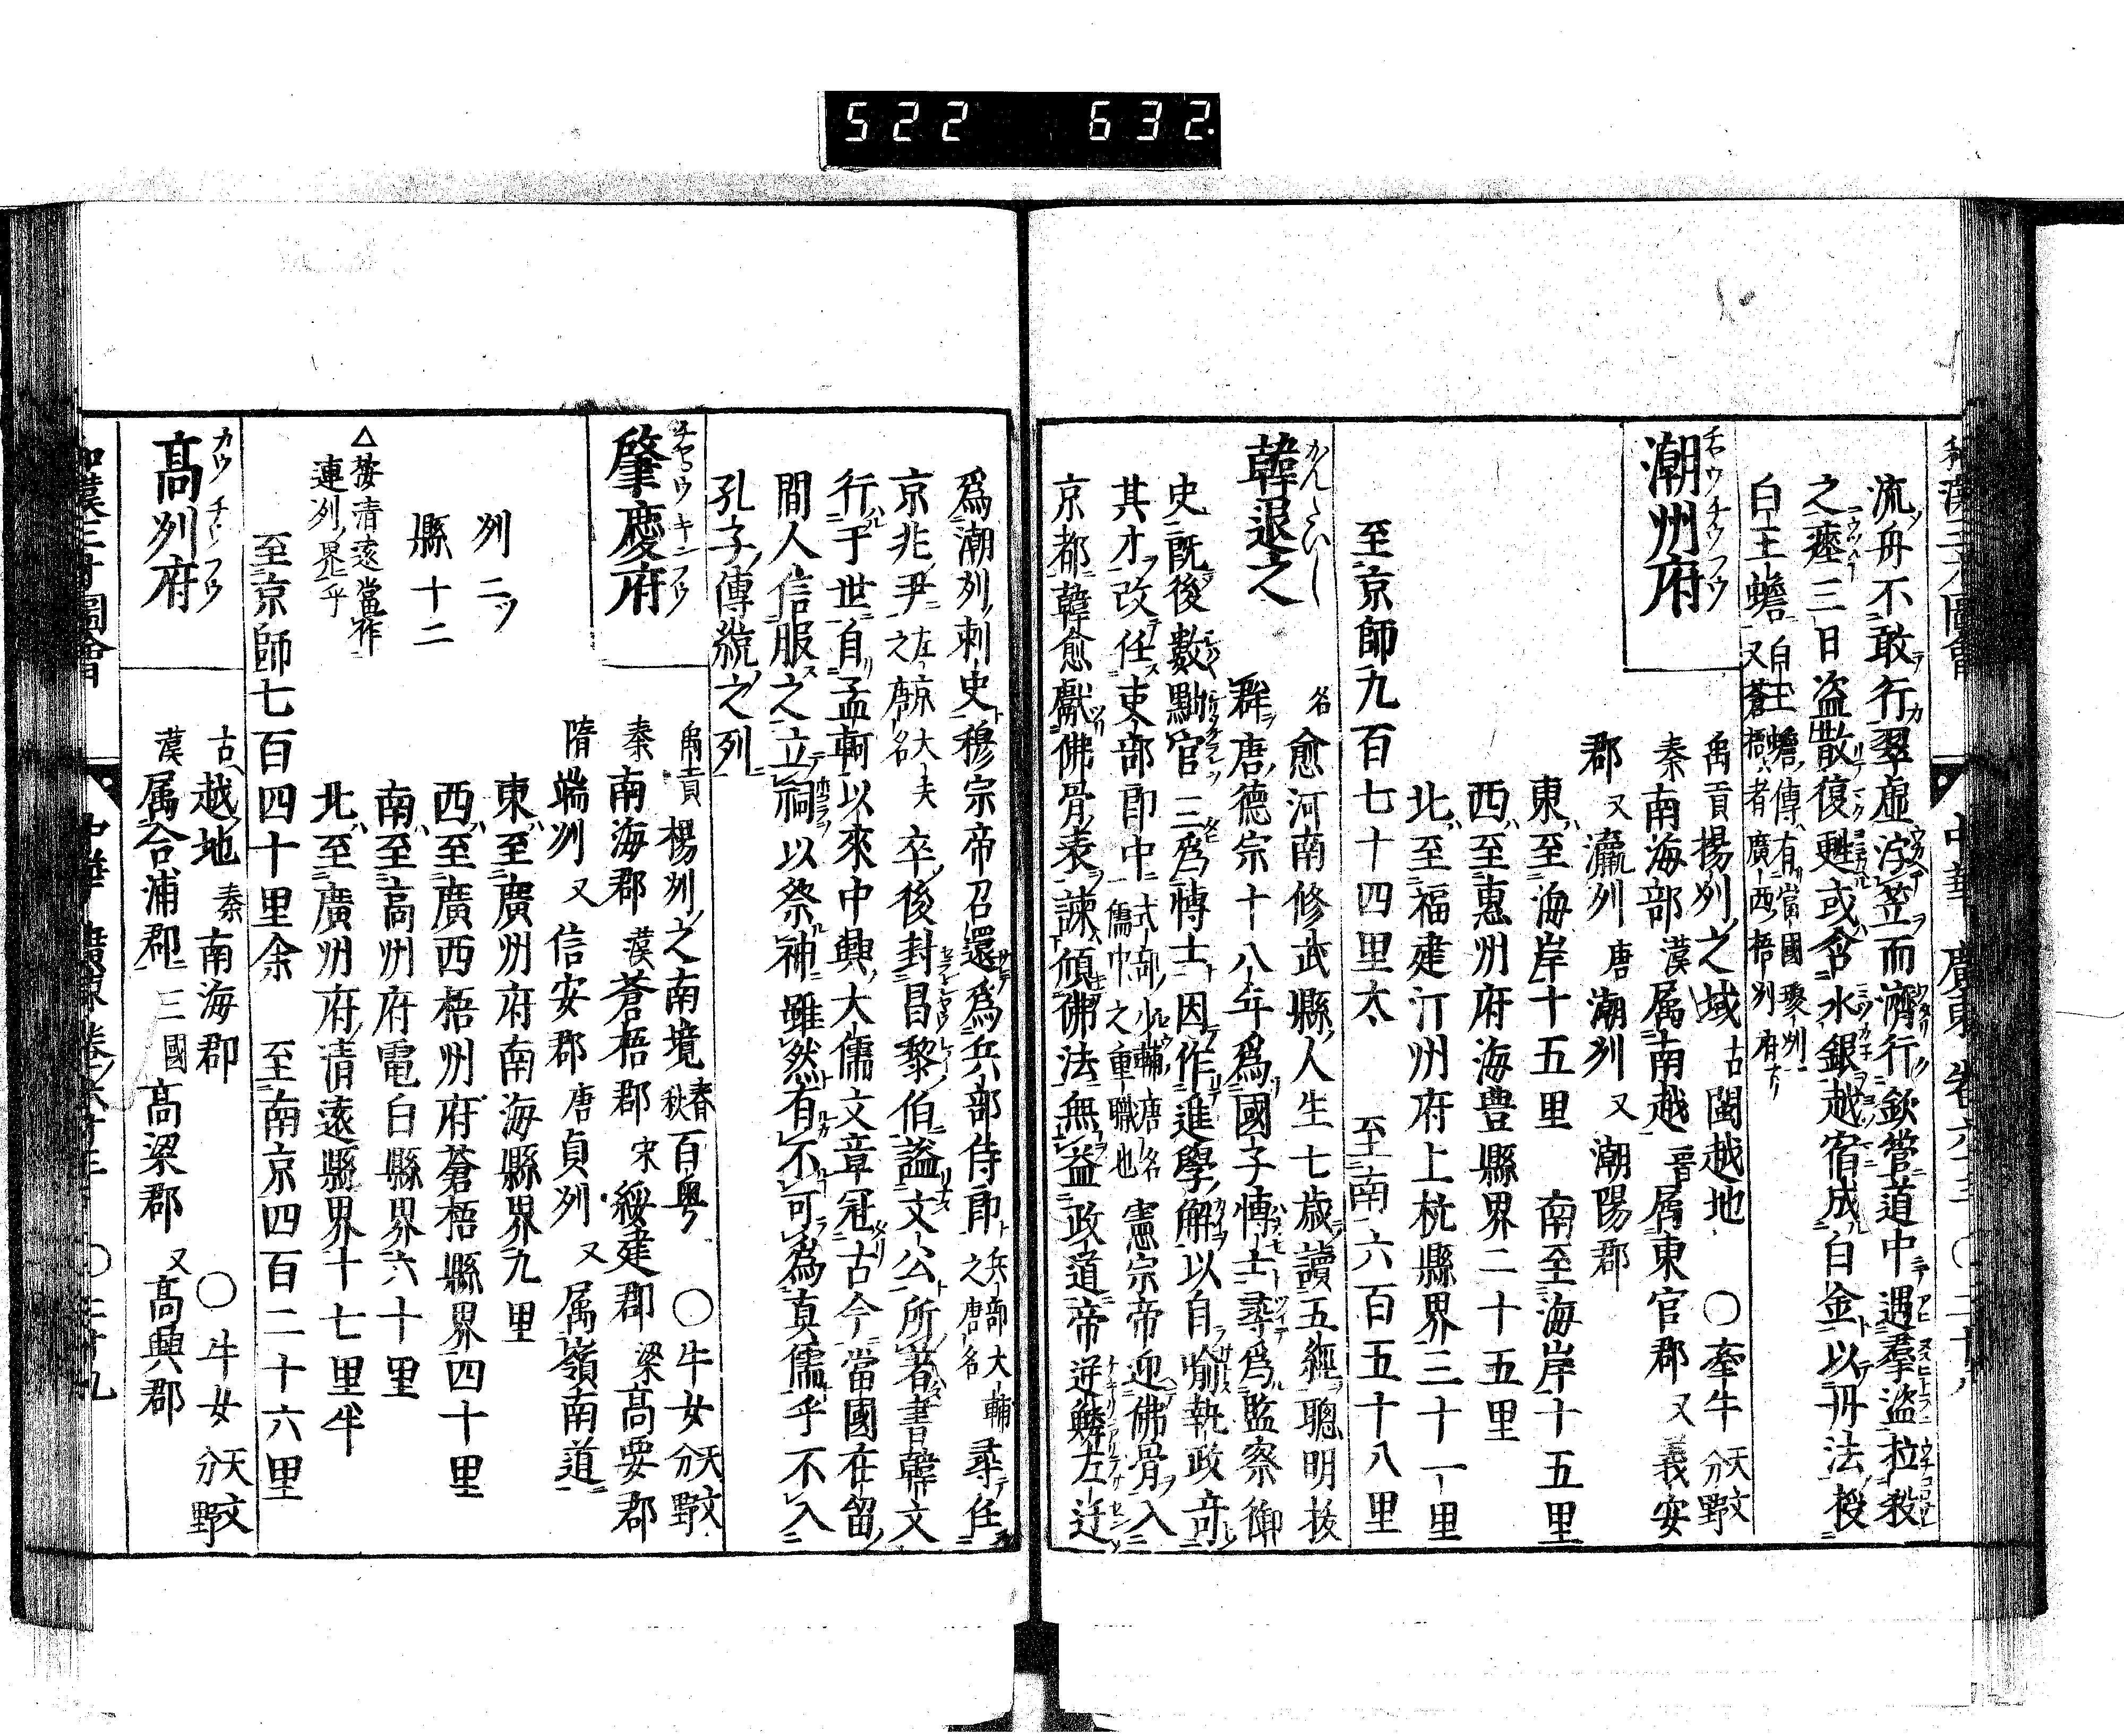 522 632
和漢三才圖會 中華 廣東 卷六十三 ○二十八
流舟不敢行翠虛浮笠而濟行欽管道中遇羣盜拉殺
之瘞三日盜散復甦或含水銀越宿成白金以丹法授
白玉蟾 白玉蟾傳有當國瓊州
又蒼梧者廣西梧州府
潮州府
禹貢揚州之域 古閩越地 ○牽牛 天文分野
秦南海部 漢属南越 晋屑東官郡 又義安
郡 又瀛州 唐潮州 又潮陽郡
東至海岸十五里 南至海岸十五里
西至惠州府海豊縣界二十五里
北至福建汀州府上杭縣界三十一里
至京師九百七十四里太 至南六百五十八里
韓退之
名愈河南修武縣人生七歳讀五經聰明拔
群唐德宗十八年爲國子博士尋爲監察御
史既後數黜官三爲博士因作進學解以自喻執政奇
其才改任吏部郎中 式部少輔唐名
儒中之重職也 憲宗帝迎佛骨入
京都韓愈獻佛骨表諫傾佛法無益政道帝逆鱗左迁
爲潮州刺史穆宗帝召還爲兵部侍郎 兵部大輔
之唐名 尋任
京兆尹 左京大夫
之唐名 卒後封昌黎伯謚文公所著書韓文
行于世自孟軻以來中興大儒文章冠古今當國在留
間人信服之立祠以祭神雖然有不可為真儒乎不入
孔子傳統之列
肇慶府
禹貢楊州之南境 春秋百粤 ○牛女 天文分野
秦南海郡 漢蒼梧郡 宋綏建郡 梁高要郡
隋端州 又信安郡 唐貞州 又属嶺南道
東至廣州府南海縣界九里
州二ツ
西至廣西梧州府蒼梧縣界四十里
縣十二
南至高州府電白縣界六十里
北至廣州府清遠縣界十七里半
△按清遠當作
連州界乎
至京師七百四十里余 至南京四百二十六里
高州府
古越地 秦南海郡 ○牛女 天文分野
漢属合浦郡 三國高梁郡 又高興郡